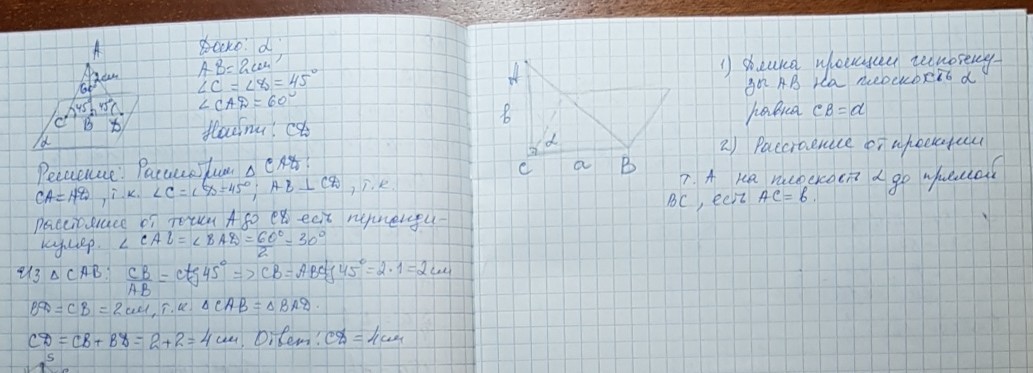 A
2см
60°
45° 45°
C B D
α
Дано: α;
AB = 2см
∠C = ∠D = 45°
∠CAD = 60°
Найти: CD
Решение: Рассмотрим △ CAD:
CA = AD, т.к. ∠C = ∠D = 45°; AB ⊥ CD, т.к.
расстояние от точки A до CD есть перпенди-
куляр. ∠CAB = ∠BAD = 60°/2 = 30°
Из △ CAB: CB/AB = ctg 45° => CB = AB ctg 45° = 2·1 = 2см
BD = CB = 2см, т.к. △CAB = △BAD.
CD = CB + BD = 2+2 = 4 см. Ответ: CD = 4см
S
A
b
α
C a B
1) Длина проекции гипотену-
зы AB на плоскость α
равна CB = a
2) Расстояние от проекции
т. A на плоскость α до прямой
BC, есть AC = b.